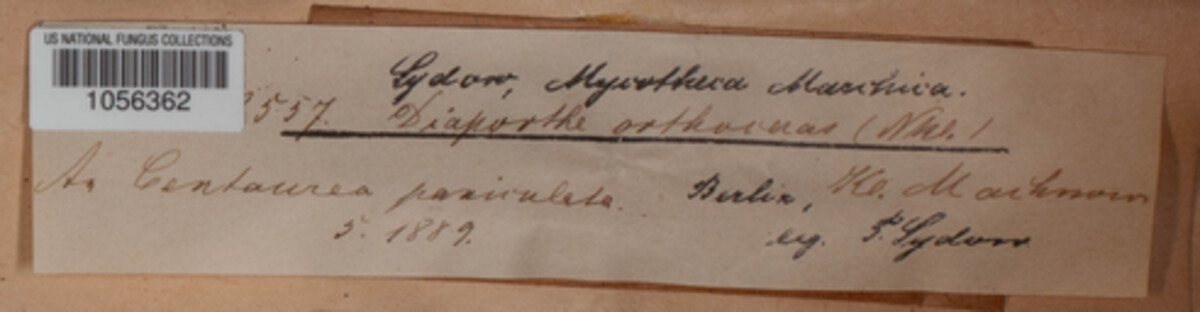 US NATIONAL FUNGUS COLLECTIONS
1056362
Sydow, Mycotheca Marchica.
557. Diaporthe orthoceras (Nke.)
An Centaurea paniculata. Berlin, Kl. Machnow
5. 1889. leg. P. Sydow